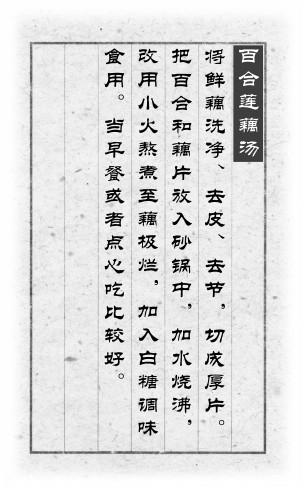 百合莲藕汤
将鲜藕洗净、去皮、去节，切成厚片。
把百合和藕片放入砂锅中，加水烧沸，
改用小火熬煮至藕极烂，加入白糖调味
食用。当早餐或者点心吃比较好。